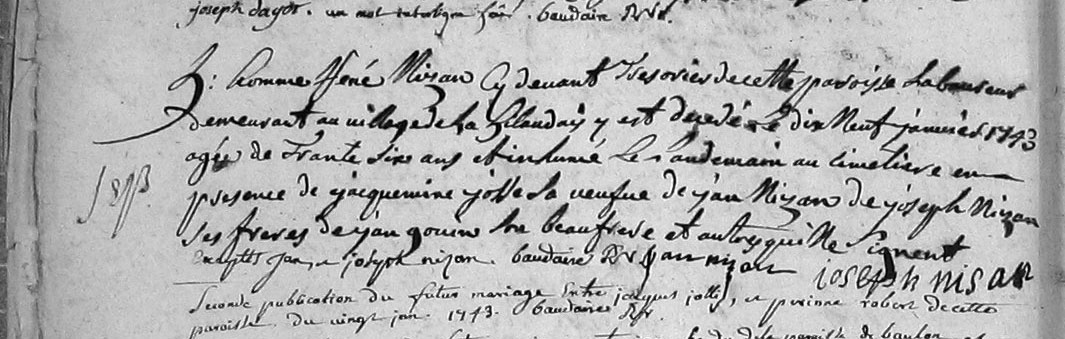 joseph dayot. un mot interligne baudaire Rr.
h: homme René Nizan Cy devant Tresorier de cette paroisse Laboureur
demeurant au village de La Gilaudais y est decedé Le dix Neuf janvier 1743
agée de Trante Six ans et inhumé Le Landemain au Cimetiere en
presence de jacquemine josse sa veufue de jan Nizan de joseph Nizan
Ses freres de jan gouin beaufrere et autres qui Ne Signent
Exceptés Jan, et joseph nizan. baudaire Rr jan nizan joseph nisan
Seconde publication du futur mariage Entre jacques jolly, et perinne robert de cette
paroisse du vingt jan. 1743. baudaire Rr.
de la paroisse de baulon